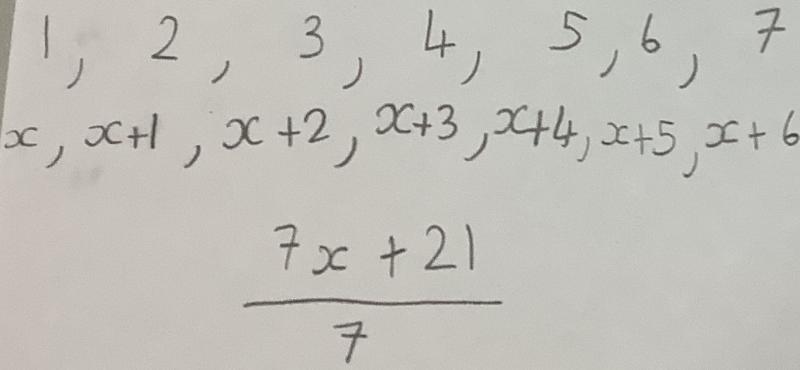 1, 2, 3, 4, 5, 6, 7
x, x+1, x+2, x+3, x+4, x+5, x+6
7x + 21
7